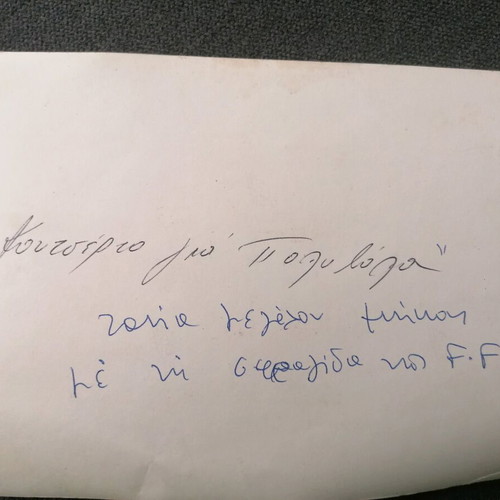 Κοντσέρτο γιά Πολυβόλα"
ταινία μεγάλου μήκους
μέ τη σφραγίδα της F.F